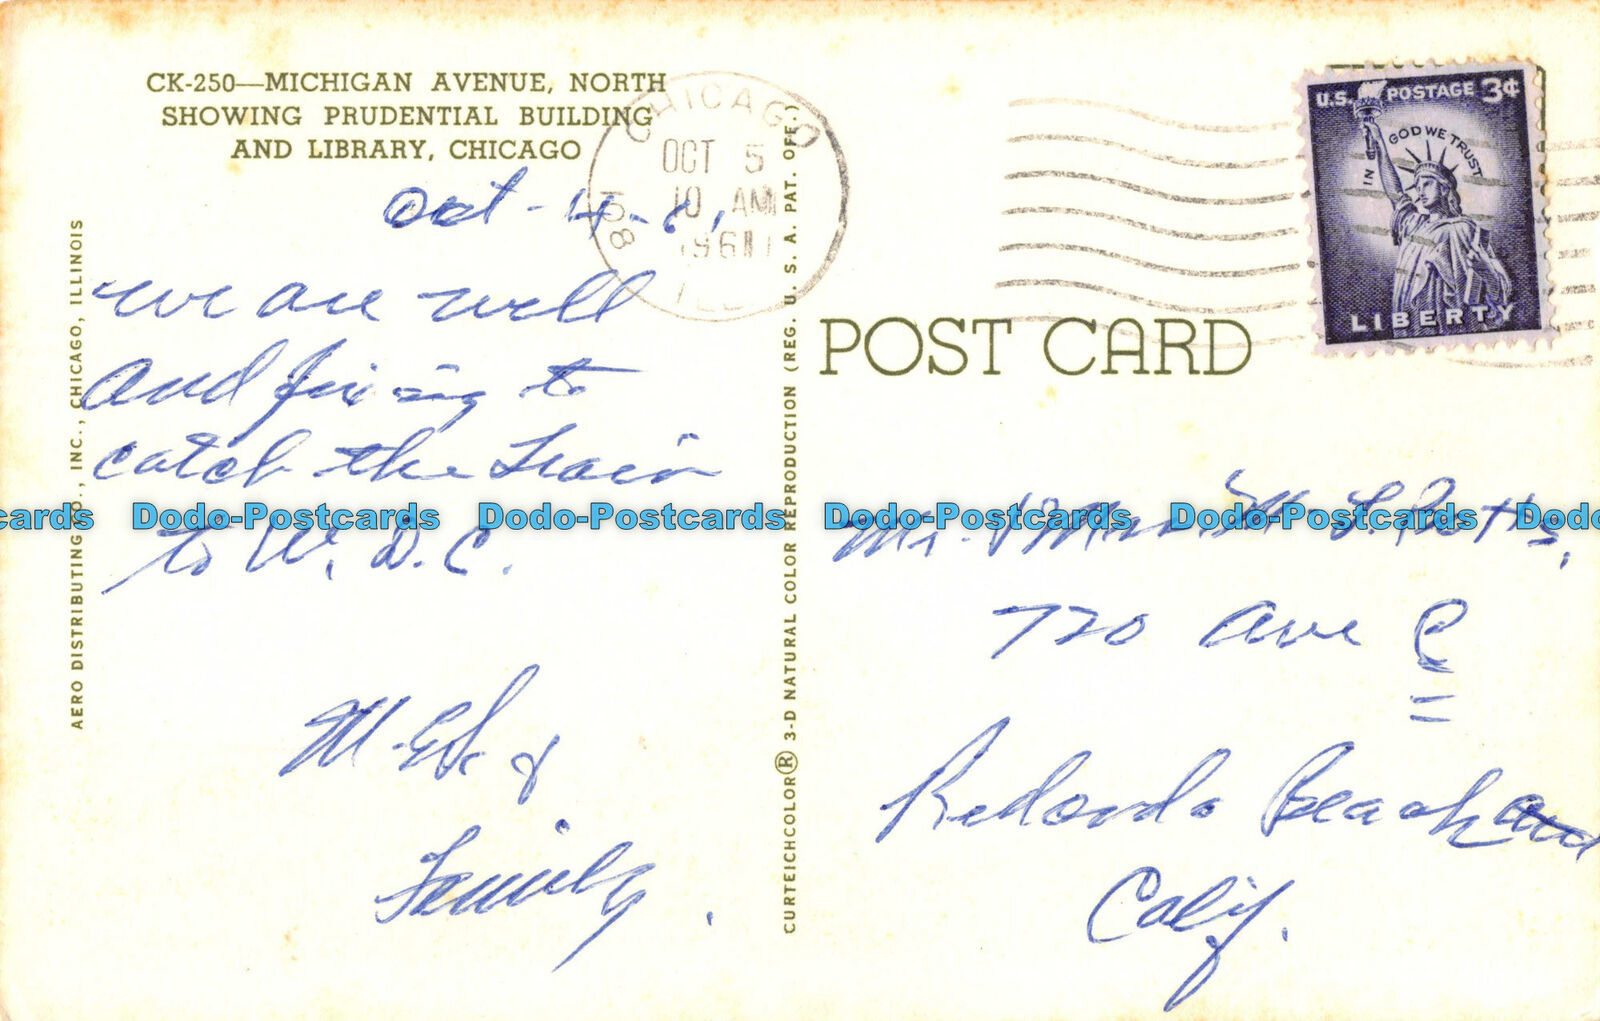 CK-250—MICHIGAN AVENUE, NORTH
SHOWING PRUDENTIAL BUILDING
AND LIBRARY, CHICAGO
Oct-4-61
we are well
and fixing to
catch the Train
to W. D. C.
Family.
AERO DISTRIBUTING CO., INC., CHICAGO, ILLINOIS
CURTEICHCOLOR® 3-D NATURAL COLOR REPRODUCTION (REG. U. S. A. PAT. OFF.)
CHICAGO
OCT 5
10 AM
1961
ILL
U.S. POSTAGE 3¢
IN GOD WE TRUST
LIBERTY
POST CARD
Mr. & Mrs.
720 Ave C
Redondo Beach
Calif.
cards Dodo-Postcards Dodo-Postcards Dodo-Postcards Dodo-Postcards Dodo